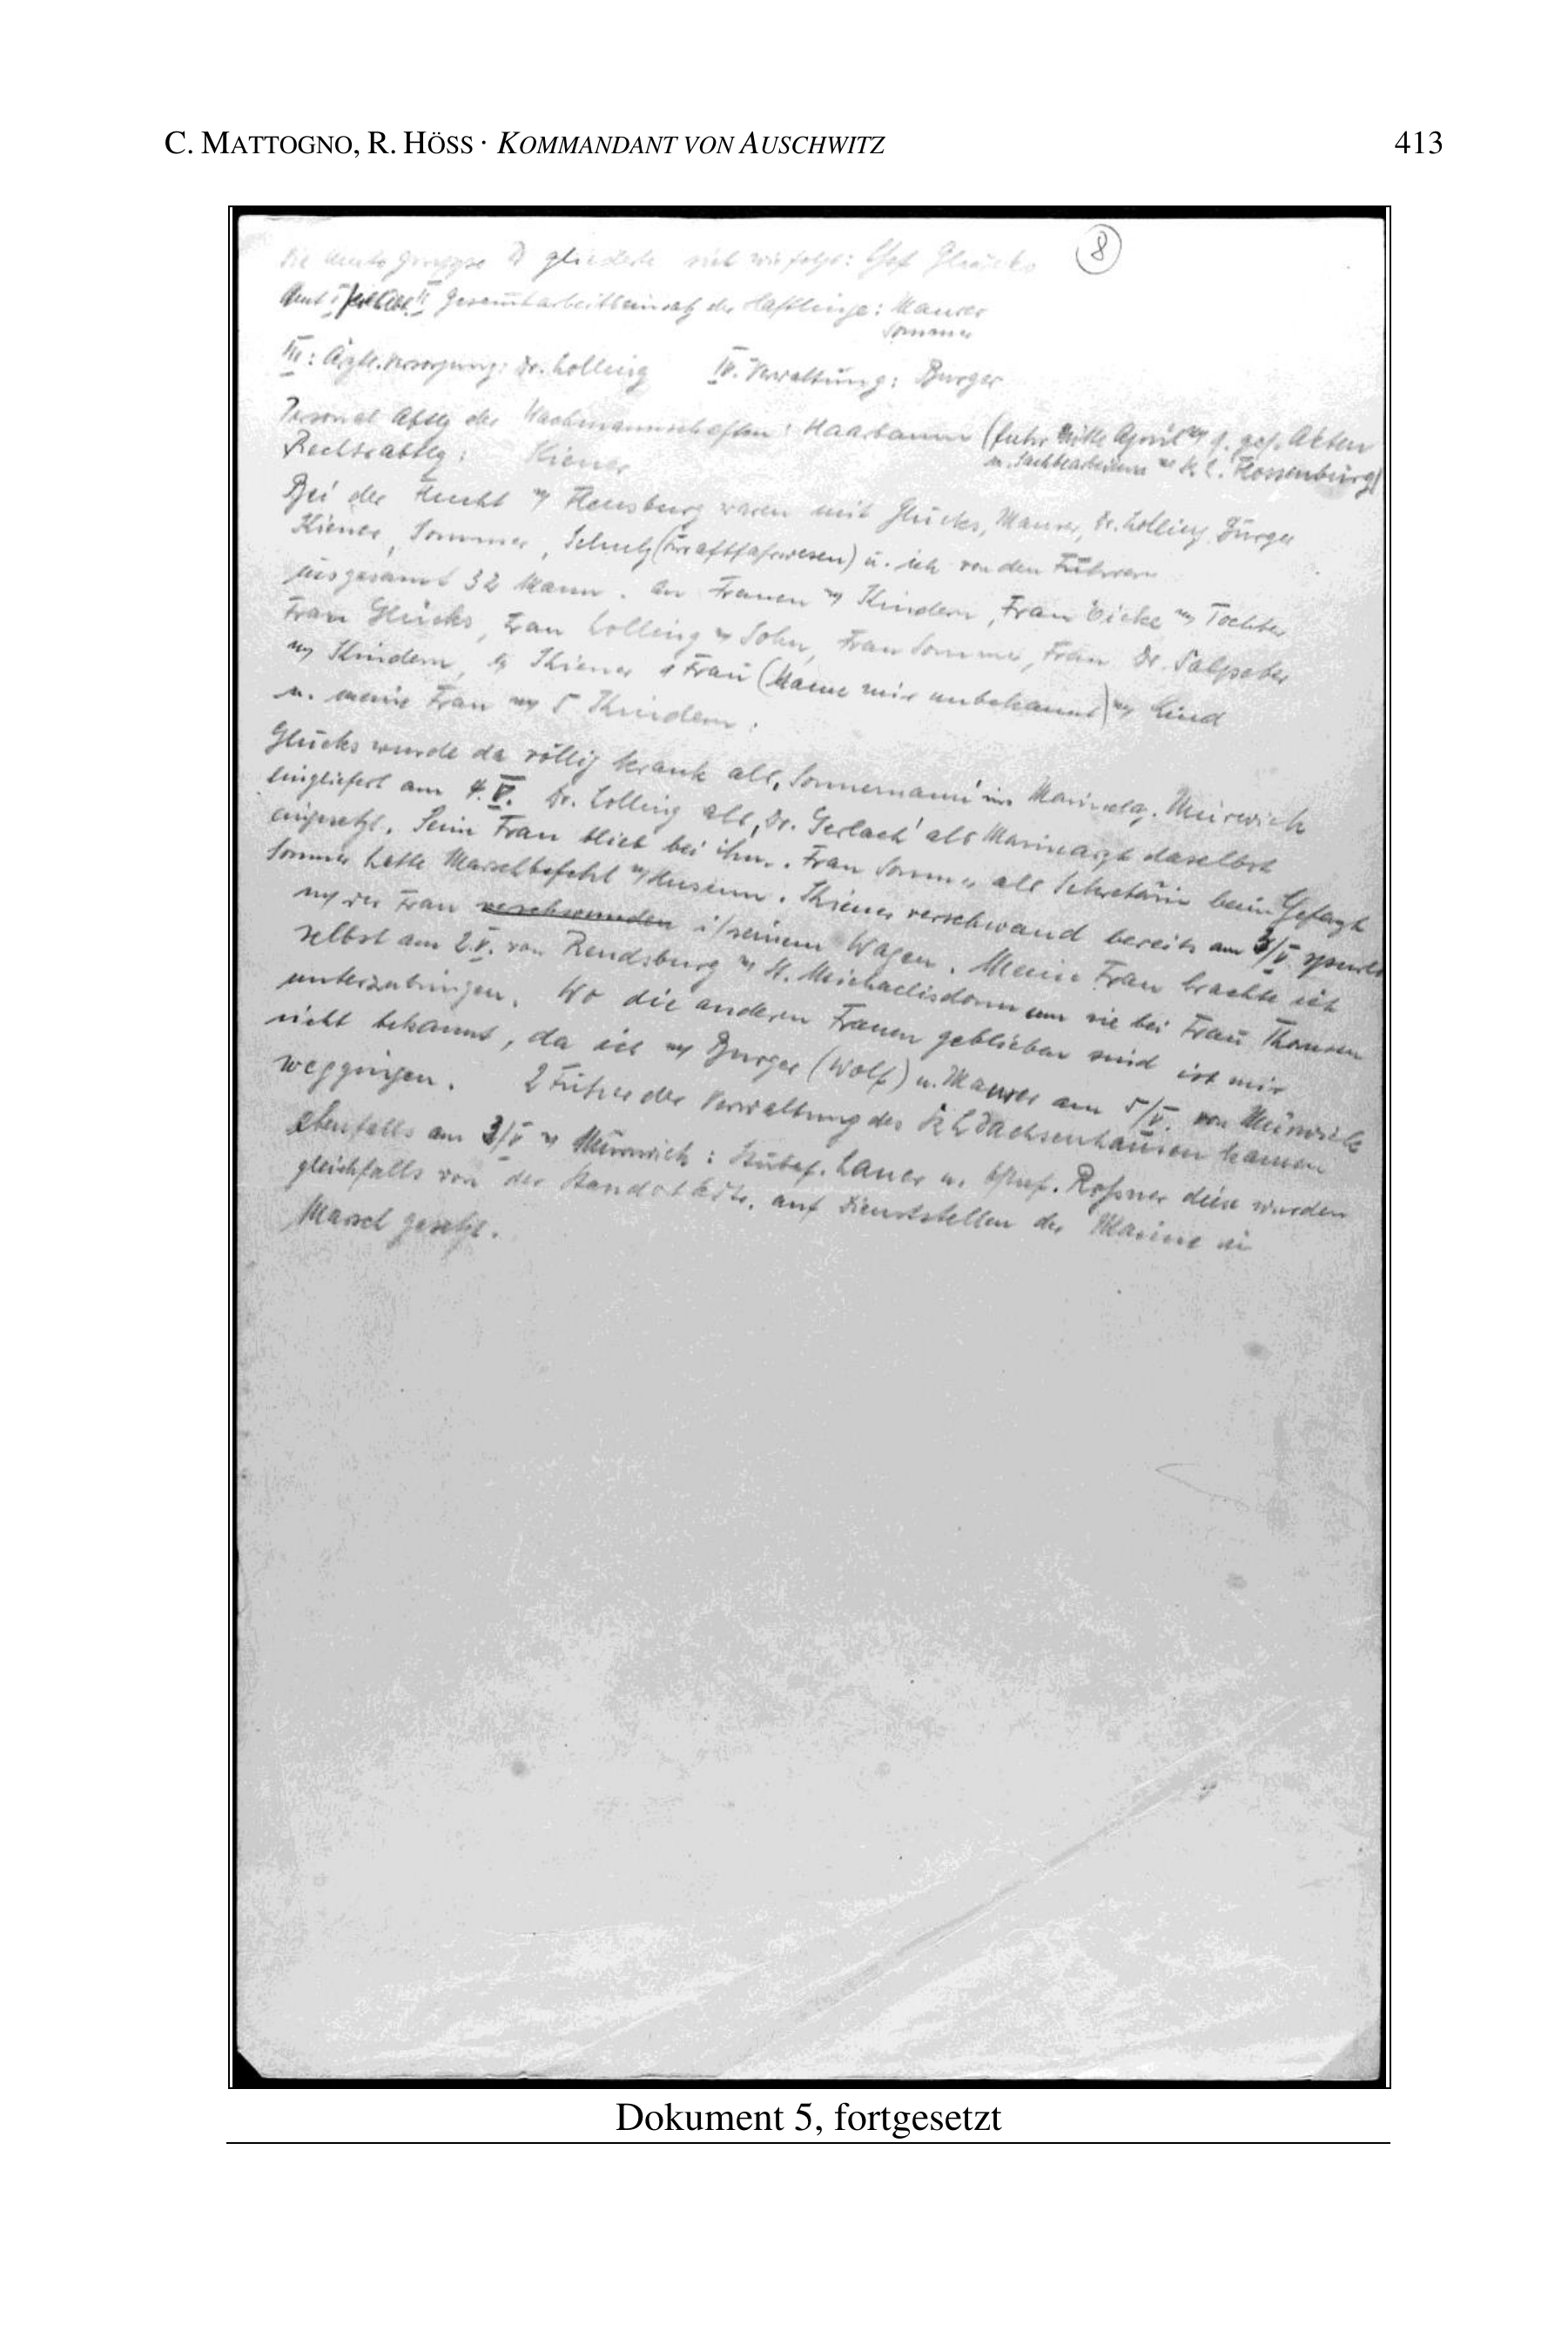 C. MATTOGNO, R. HÖSS · KOMMANDANT VON AUSCHWITZ 413
8
Die Amtsgruppe D gliederte sich wie folgt: Chef Glücks
Amt I II Gesamtarbeitseinsatz der Häftlinge: Maurer
Sommer
III: Ärztl. Versorgung: Dr. Lolling IV. Verwaltung: Burger
Personal Abtlg der Wachmannschaften: Haarbaum (fuhr Mitte April g. gef. Akten
u. Sachbearbeitern K.L. Flossenbürg)
Rechtsabtlg: Kiener
Bei der Flucht Flensburg waren mit Glücks, Maurer, Dr. Lolling, Burger
Kiener, Sommer, Schulz (Kraftfahrwesen) u. ich von den Führern
insgesamt 32 Mann. An Frauen Kindern, Frau Eicke Tochter
Frau Glücks, Frau Lolling Sohn, Frau Sommer, Frau Dr. Salpeter
Kindern, Kiener 1 Frau (Name mir unbekannt) Kind
u. meine Frau 5 Kindern.
Glücks wurde da völlig krank als 'Sonnemann' ins Marinelaz. Mürwick
eingeliefert am 4.V. Dr. Lolling als 'Dr. Gerlach' als Marinearzt daselbst
eingesetzt. Seine Frau blieb bei ihm. Frau Sommer als Sekretärin beim
Sommer hatte Marschbefehl Husum. Kiener verschwand bereits am 3/V.
der Frau verschwunden i/seinem Wagen. Meine Frau brachte ich
selbst am 2.V. von Rendsburg St. Michaelisdonn um sie bei Frau Thomsen
unterzubringen. Wo die anderen Frauen geblieben sind ist mir
nicht bekannt, da ich Burger (Wolf) u. Maurer am 5/V. von Mürwick
weggingen. 2 Führer der Verwaltung des KL Sachsenhausen kamen
ebenfalls am 3/V Mürwick: Stubaf. Lauer u. diese wurden
gleichfalls von der auf Dienststellen der Marine in
Marsch gesetzt.
Dokument 5, fortgesetzt